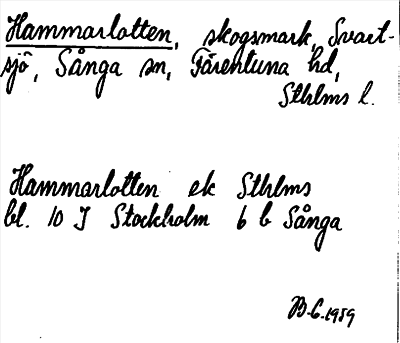 Hammarlotten, skogsmark, Svart-
sjö, Sånga sn, Färentuna hd,
Sthlms l.
Hammarlotten ek Sthlms
bl. 10 I Stockholm 6 b Sånga
B.C. 1959